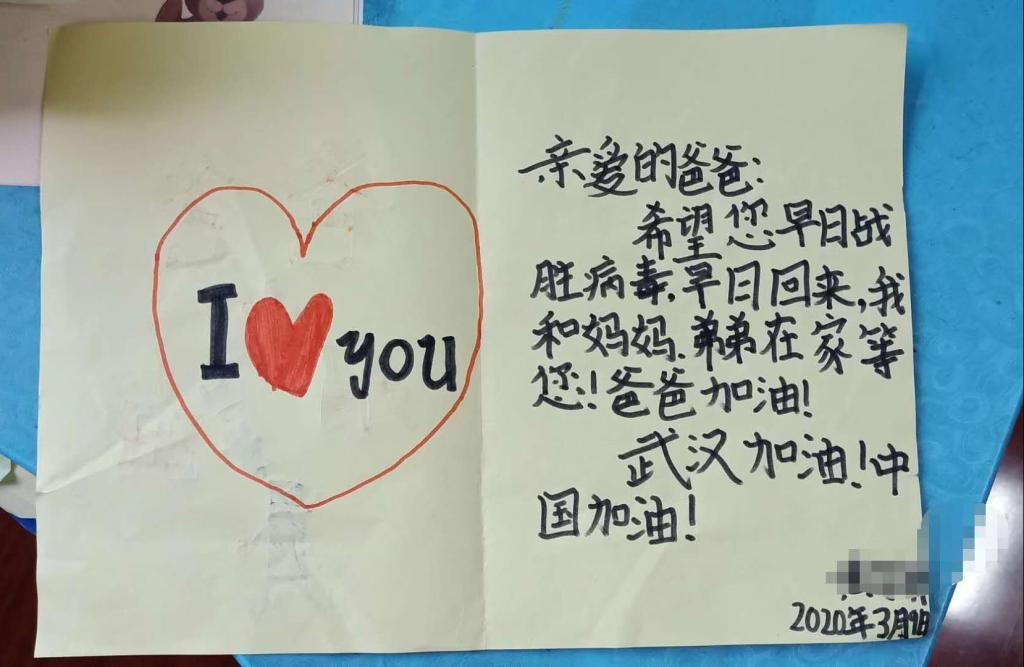 I you
亲爱的爸爸:
希望您早日战
胜病毒.早日回来,我
和妈妈.弟弟在家等
您!爸爸加油!
武汉加油!中
国加油!
2020年3月9日